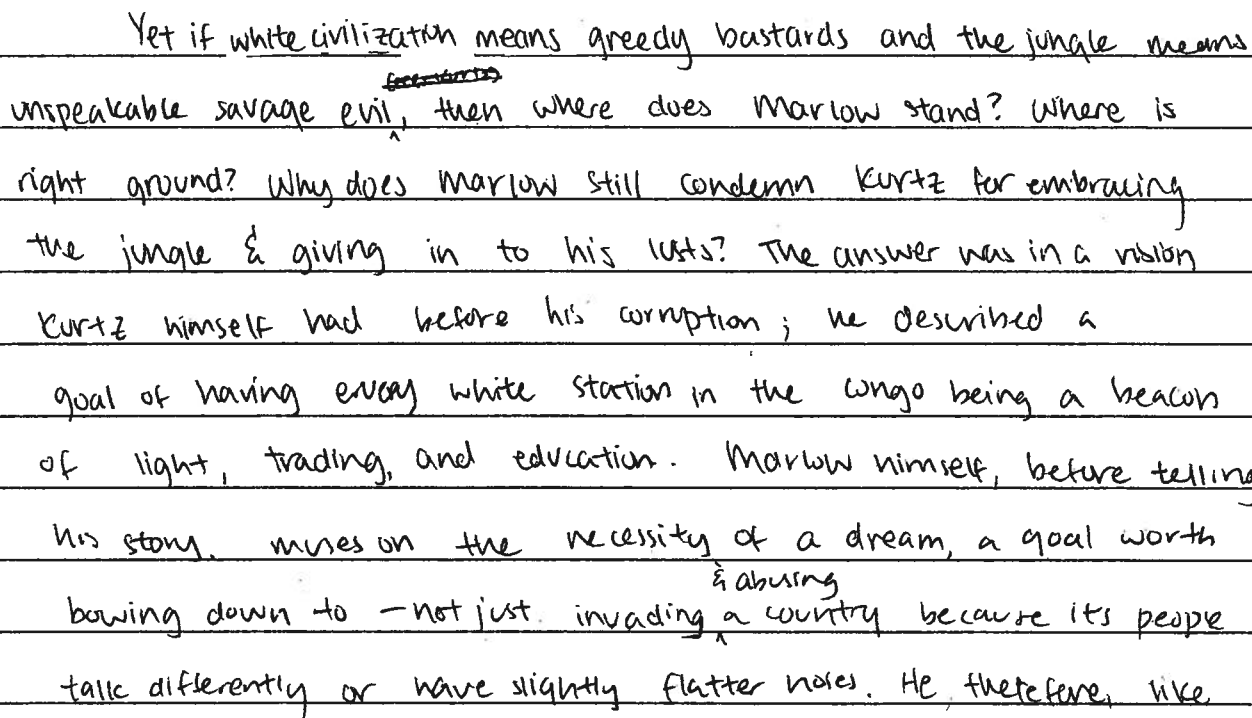 Yet if white civilization means greedy bastards and the jungle means
unspeakable savage evil, then where does Marlow stand? Where is
right ground? Why does Marlow still condemn Kurtz for embracing
the jungle & giving in to his lusts? The answer was in a vision
Kurtz himself had before his corruption; he described a
goal of having every white station in the Congo being a beacon
of light, trading, and education. Marlow himself, before telling
his story, muses on the necessity of a dream, a goal worth
& abusing
bowing down to - not just invading a country because its people
talk differently or have slightly flatter noses. He, therefore, like